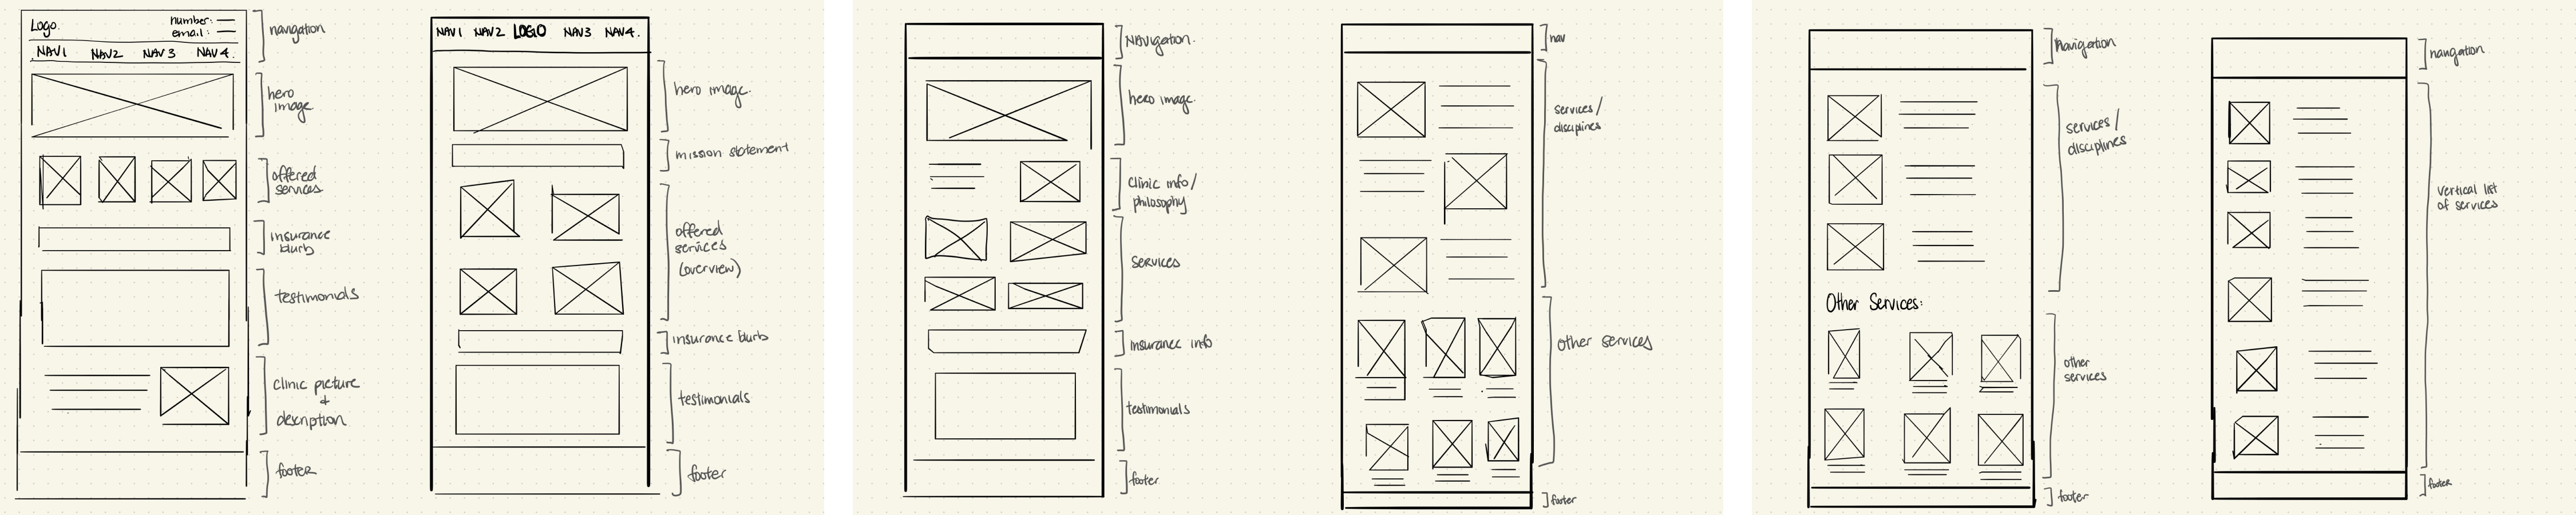 Logo.
number:
email:
NAV1 NAV2 NAV 3 NAV 4.
navigation
hero
image
offered
services
insurance
blurb
testimonials
clinic picture
&
description
footer
NAV1 NAV2 LOGO NAV3 NAV4.
hero image.
mission statement
offered
services
(overview)
insurance blurb
testimonials
footer
NAVigation.
hero image.
Clinic info/
philosophy
SERVICES
Insurance info
testimonials
footer
nav
services/
disciplines
other services
footer
Navigation
services/
disciplines
Other Services:
other
services
footer
navigation
Vertical list
of services
footer